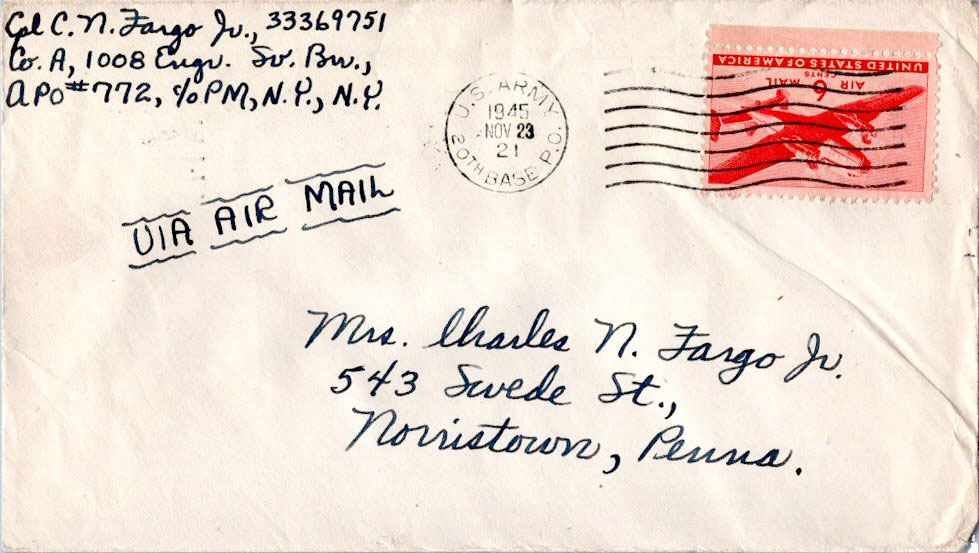 Cpl C. N. Fargo Jr., 33369751
Co. A, 1008 Engr. Sv. Bn.,
APO #772, c/o PM, N.Y., N.Y.
U.S. ARMY
1945
NOV 23
21
20TH BASE P.O.
UNITED STATES OF AMERICA
AIR MAIL
6 CENTS
VIA AIR MAIL
Mrs. Charles N. Fargo Jr.
543 Swede St.,
Norristown, Penna.